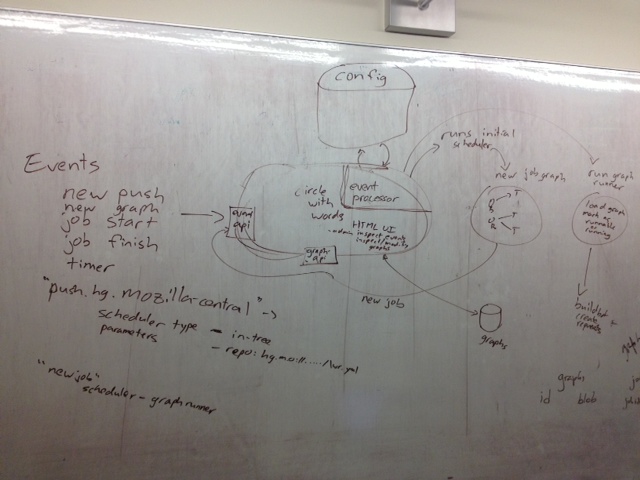 config
Events
new push
new graph
job start
job finish
timer
event api
circle
with
words
event
processor
HTML UI
- admin inspect events
inspect/modify
graphs
graph
api
runs initial
scheduler
new job graph
run graph
runner
load graph
mark as
runnable
or
running
T
T
T
new job
graphs
buildbot
create
requests
"push.hg.mozilla-central" ->
scheduler type - in-tree
parameters
- repo: hg.moz
"new job"
scheduler - graph runner
graph
id blob